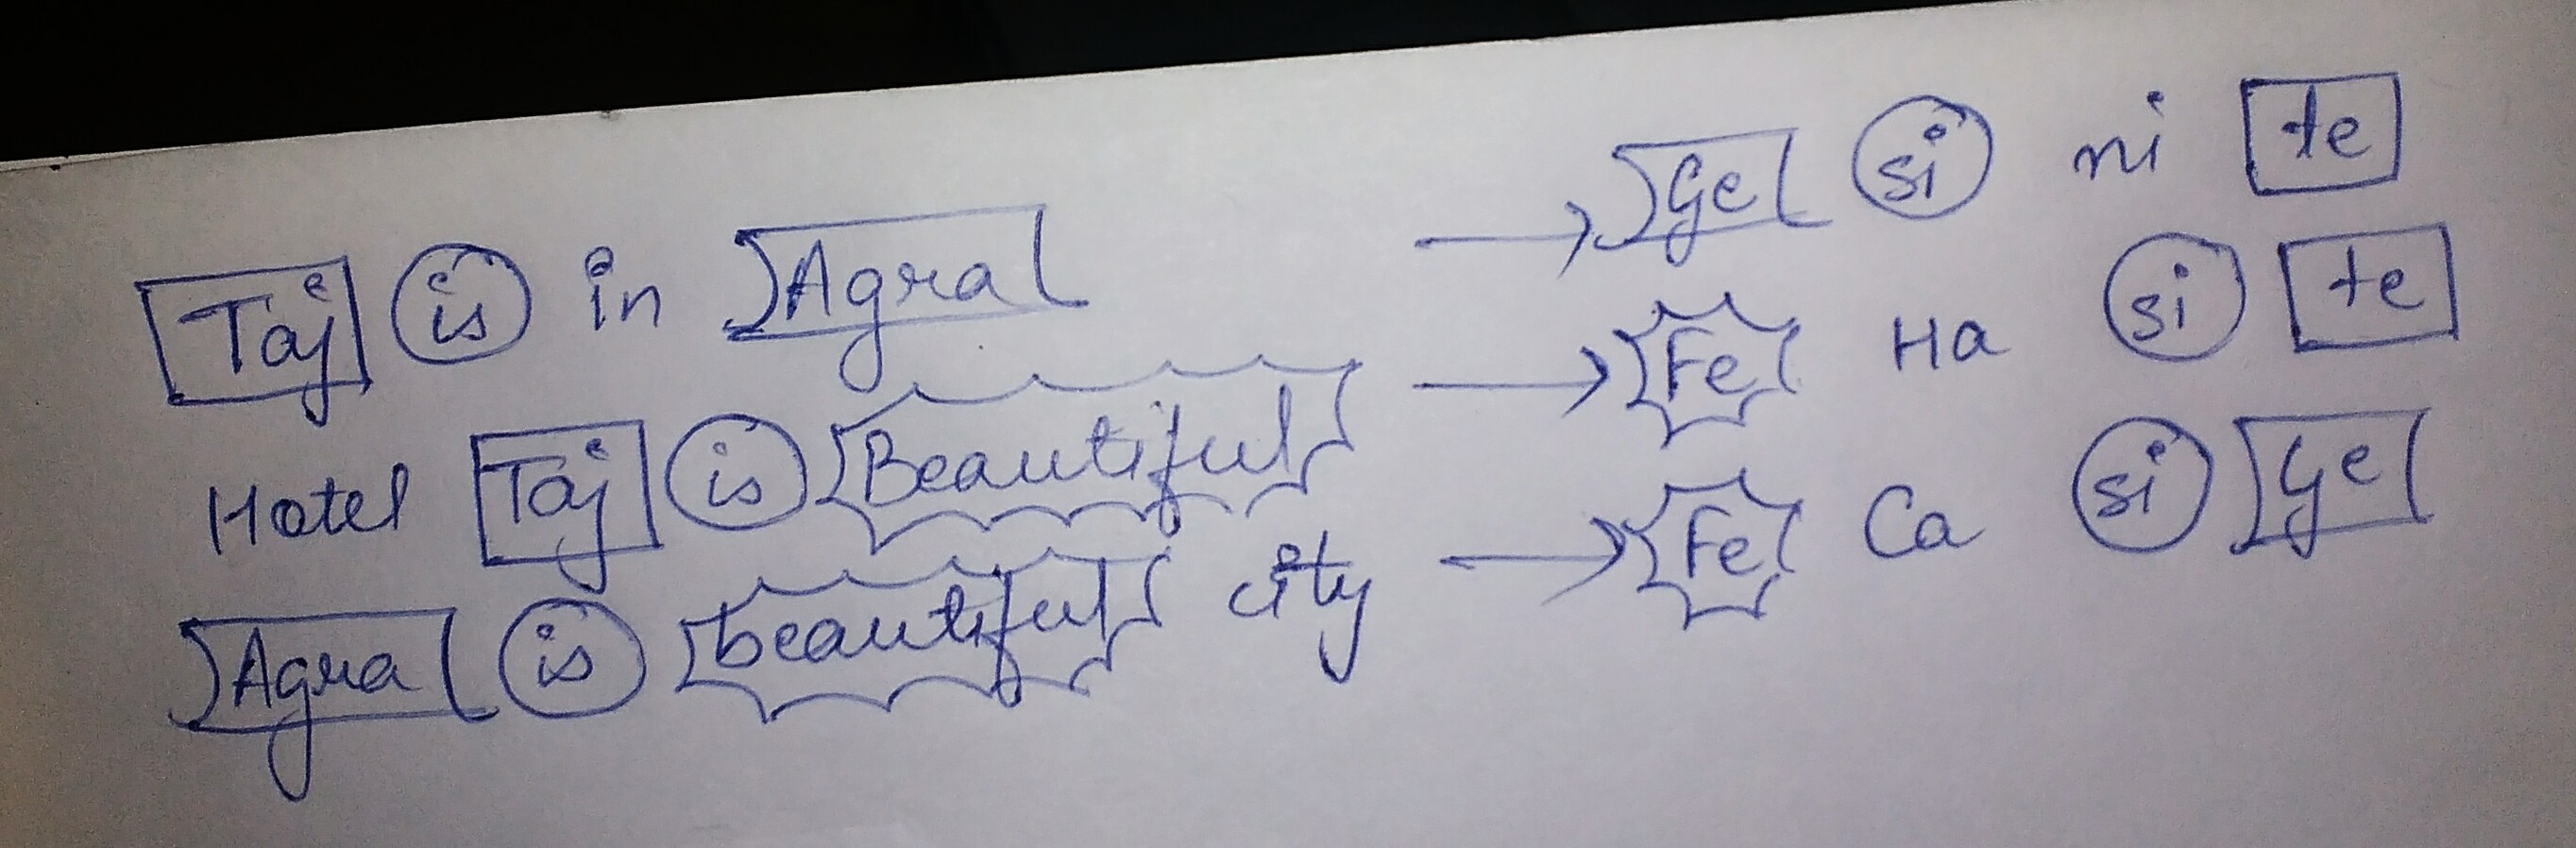 Taj is in Agra → Ge si ni te
Hotel Taj is Beautiful → Fe Ha si te
Agra is beautiful city → Fe Ca si Ge